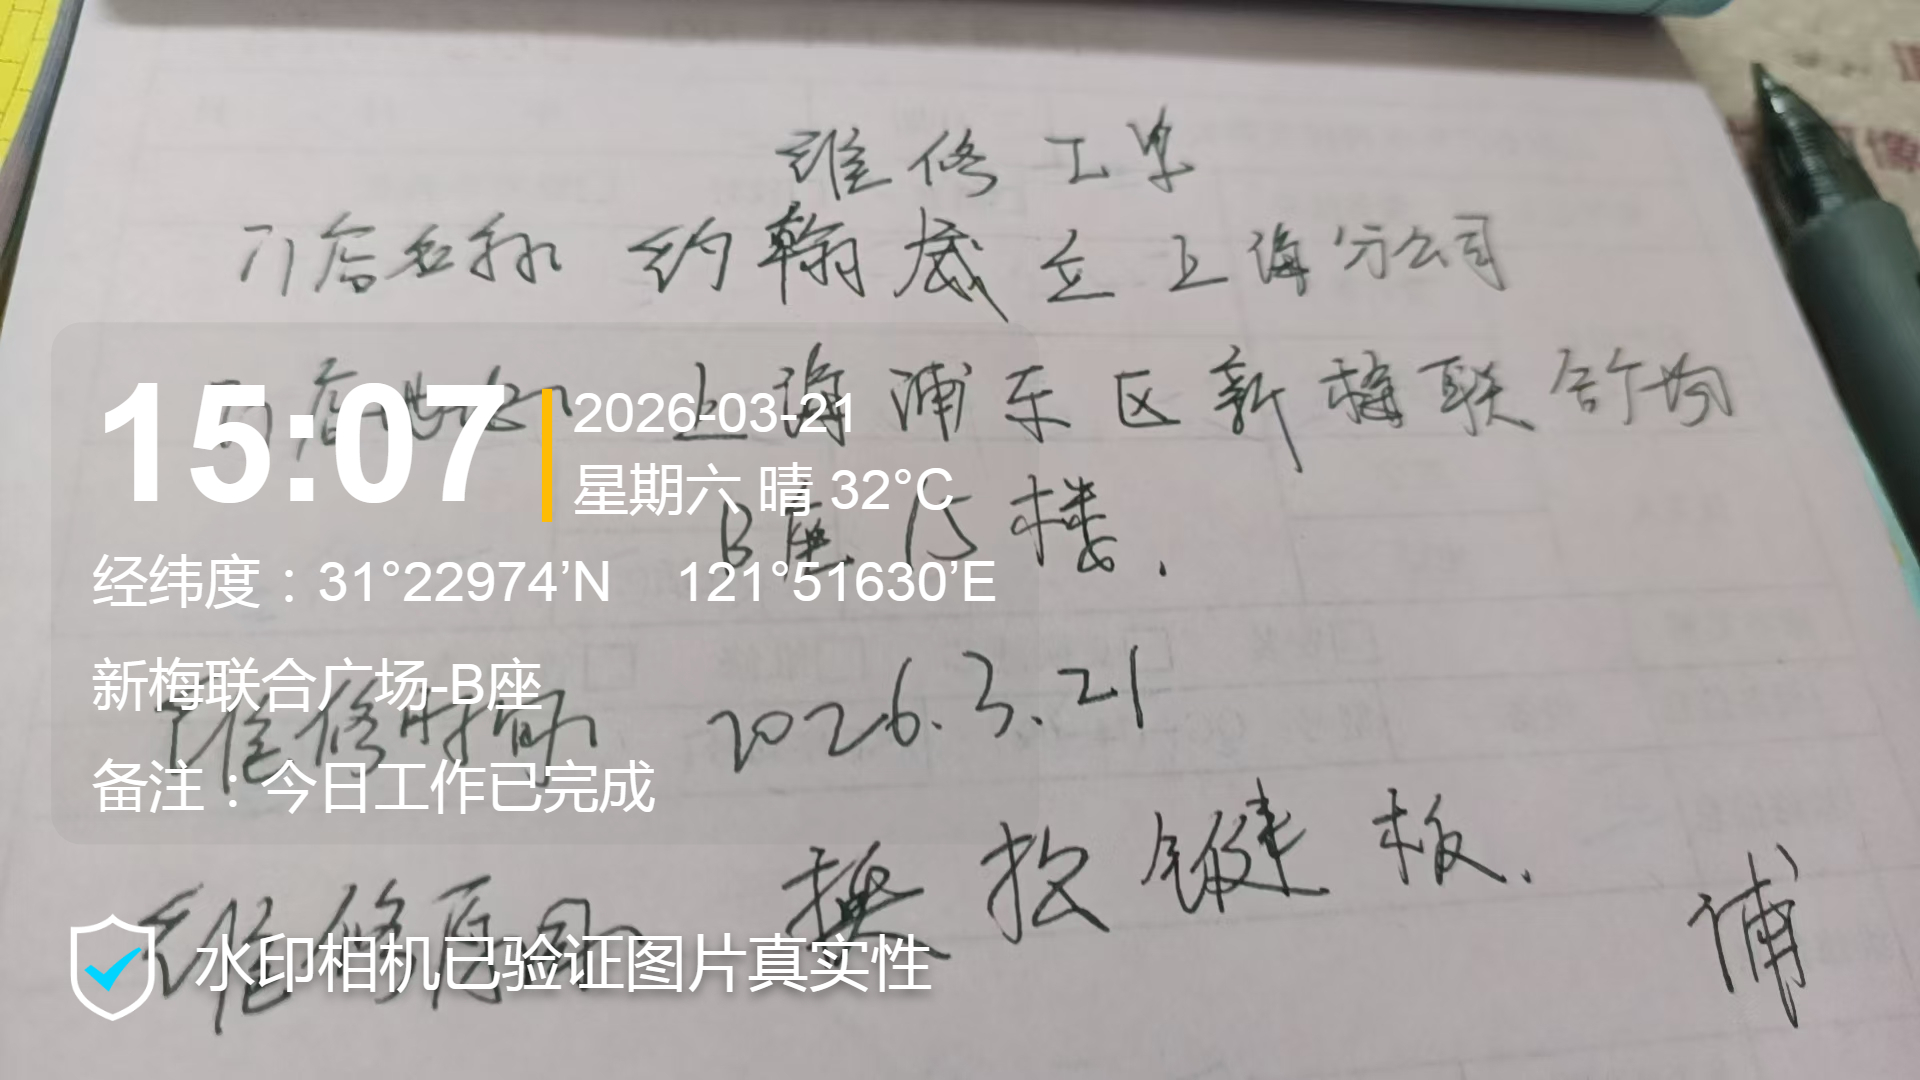 维修工单
门店名称 约翰威立上海分公司
门店地址 上海浦东区新梅联合广场
B座15楼.
维修时间 2026.3.21
维修原因 换按键板.
浦
15:07
2026-03-21
星期六 晴 32°C
经纬度：31°22974’N 121°51630’E
新梅联合广场-B座
备注：今日工作已完成
水印相机已验证图片真实性